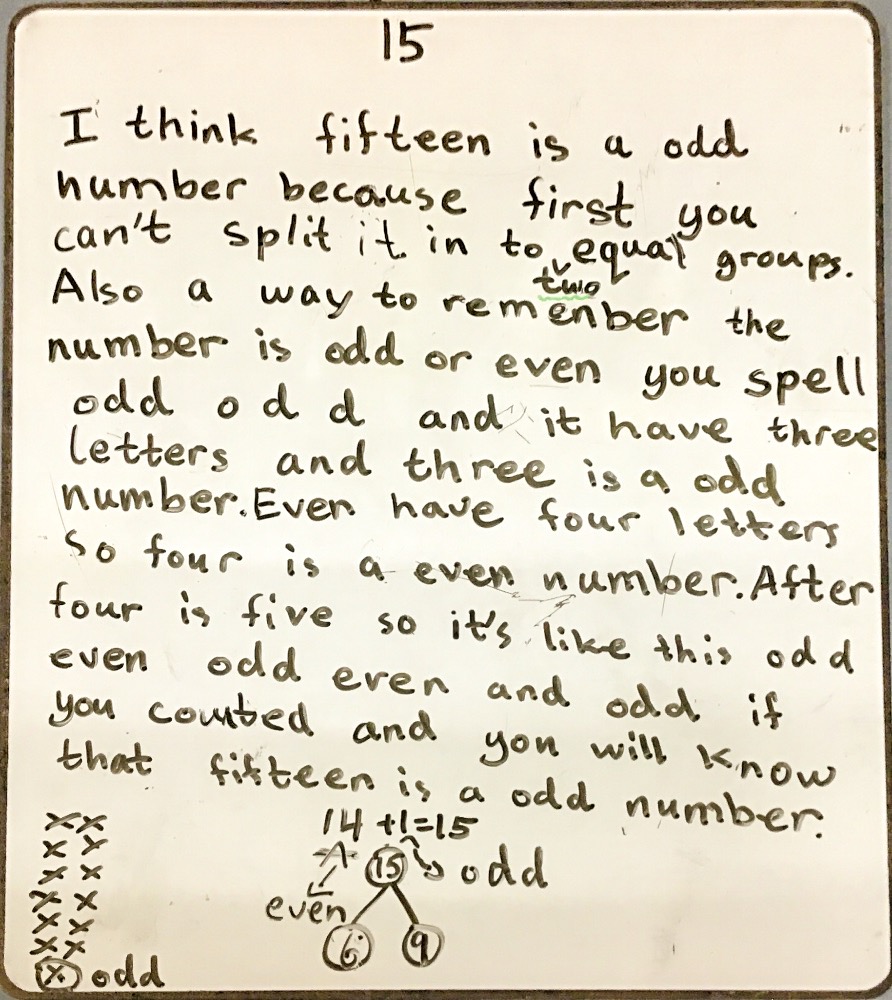 15
I think fifteen is a odd
number because first you
can't split it in to two equal groups.
Also a way to remenber the
number is odd or even you spell
odd o d d and it have three
letters and three is a odd
number. Even have four letters
so four is a even number. After
four is five so it's like this odd
even odd even and odd if
you counted and you will know
that fifteen is a odd number.
14 +1=15
15 odd
even
6 9
odd